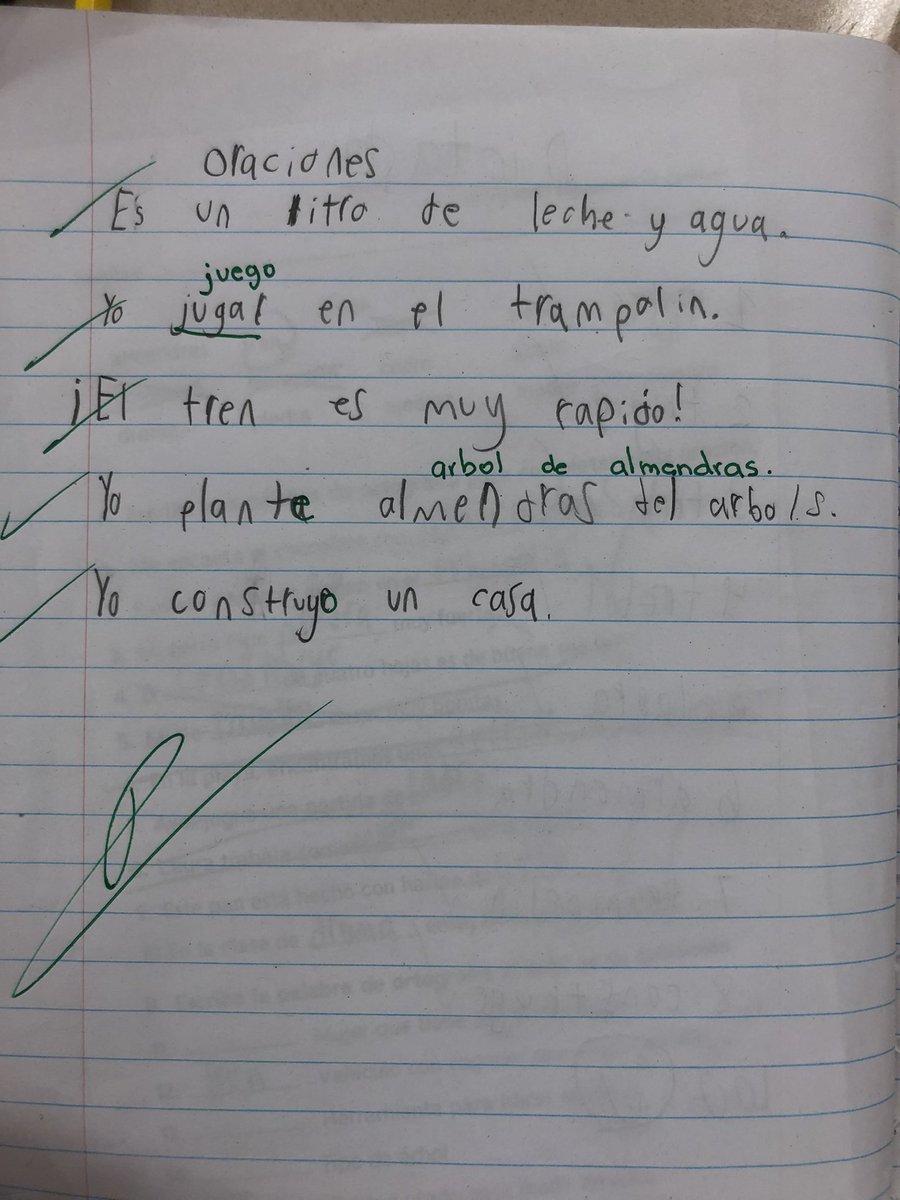 Oraciones
Es un litro de leche y agua.
juego
Yo jugar en el trampolin.
¡El tren es muy rapido!
arbol de almendras.
Yo plante almendras del arbols.
Yo construyo un casa.